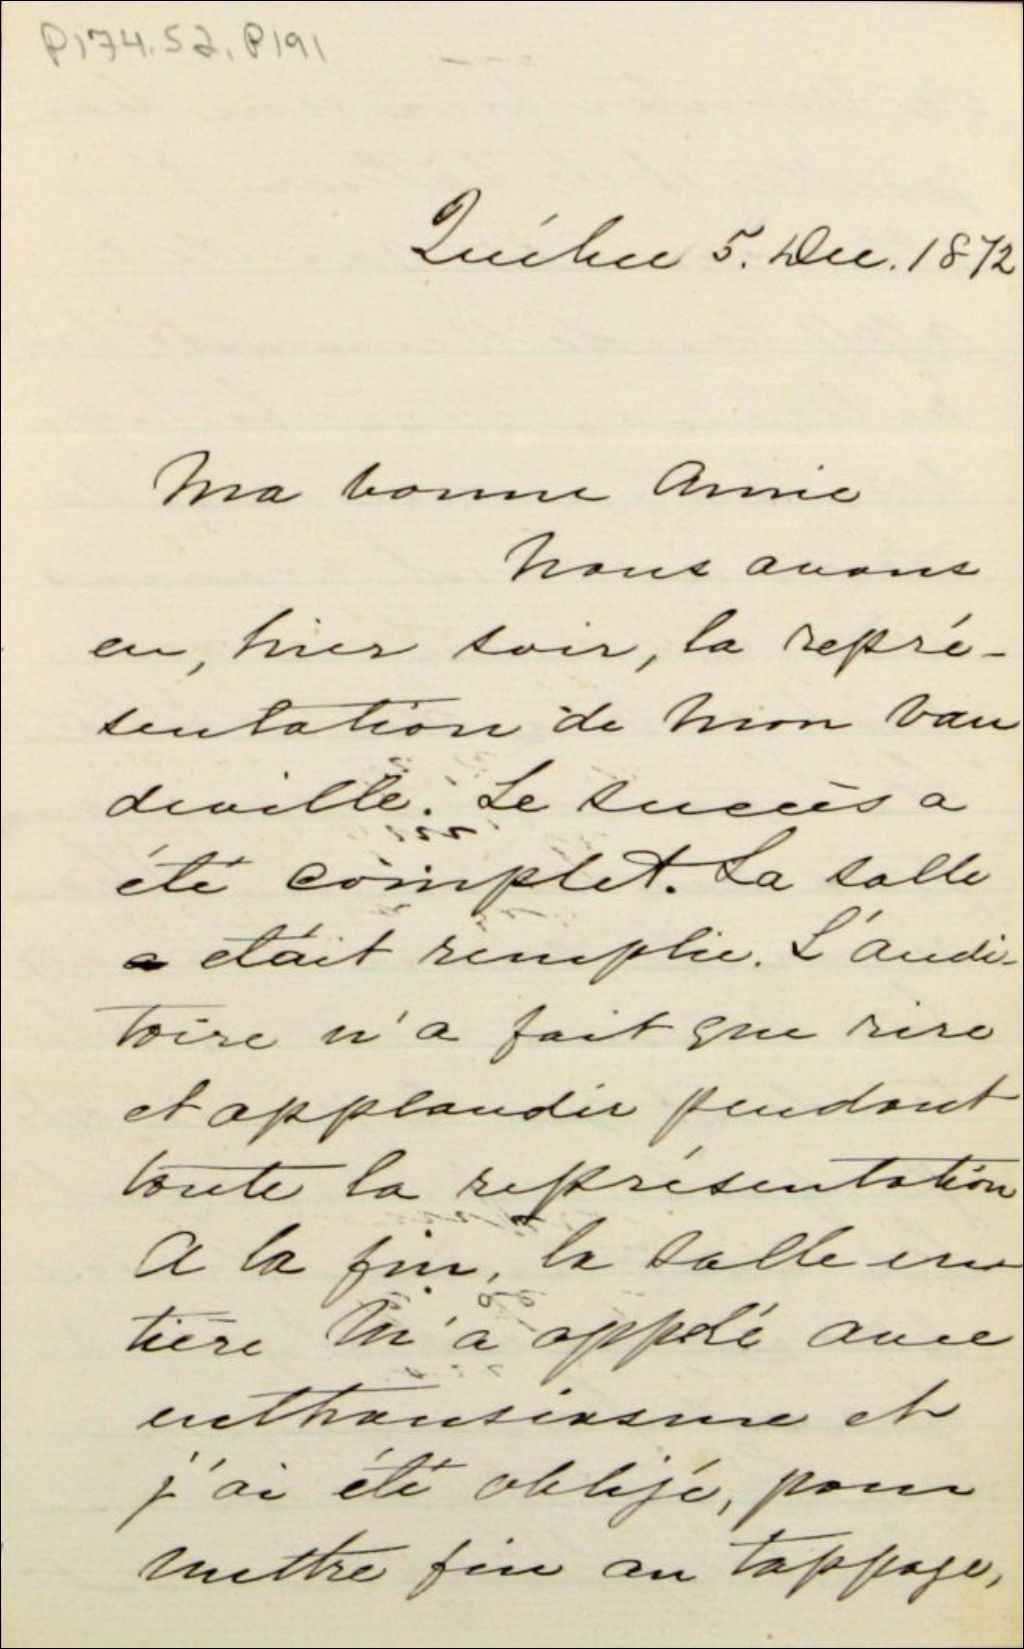 P174.S2.P191
Québec 5. Déc. 1872
Ma bonne Annie
Nous avons
eu, hier soir, la repré-
sentation de mon vau
deville. Le succès a
été complet. La salle
a était remplie. L'audi-
toire n'a fait que rire
et applaudir pendant
toute la représentation
A la fin, la salle en-
tière m'a appelé avec
enthousiasme et
j'ai été obligé, pour
mettre fin au tappage,